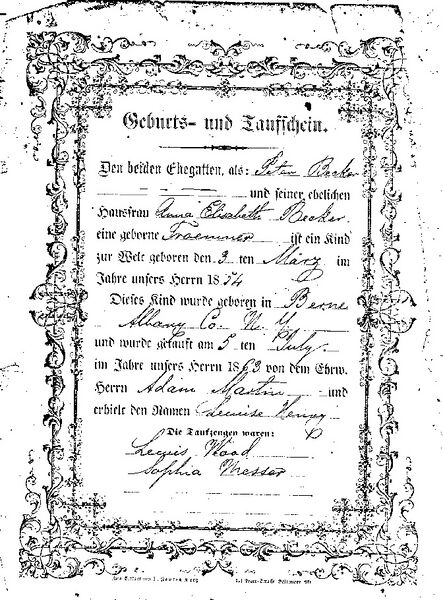 Geburts- und Taufschein.
Den beiden Ehegatten, als: Peter Becker
und seiner ehelichen
Hausfrau Anna Elisabeth Becker
eine geborne ist ein Kind
zur Welt geboren den 3. ten März im
Jahre unsers Herrn 1854
Dieses Kind wurde geboren in Berne
Albany Co. N. Y.
und wurde getauft am 5 ten July
im Jahre unsers Herrn 1863 von dem Ehrw.
Herrn Adam Martin und
erhielt den Namen Henry
Die Taufzeugen waren:
Lewis Wood
Sophia